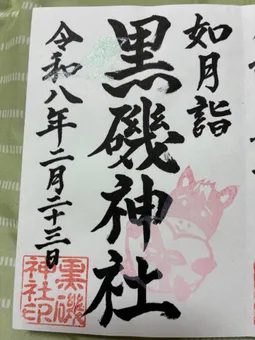 如月詣
黒磯神社
令和八年二月二十三日
黒磯
神社印